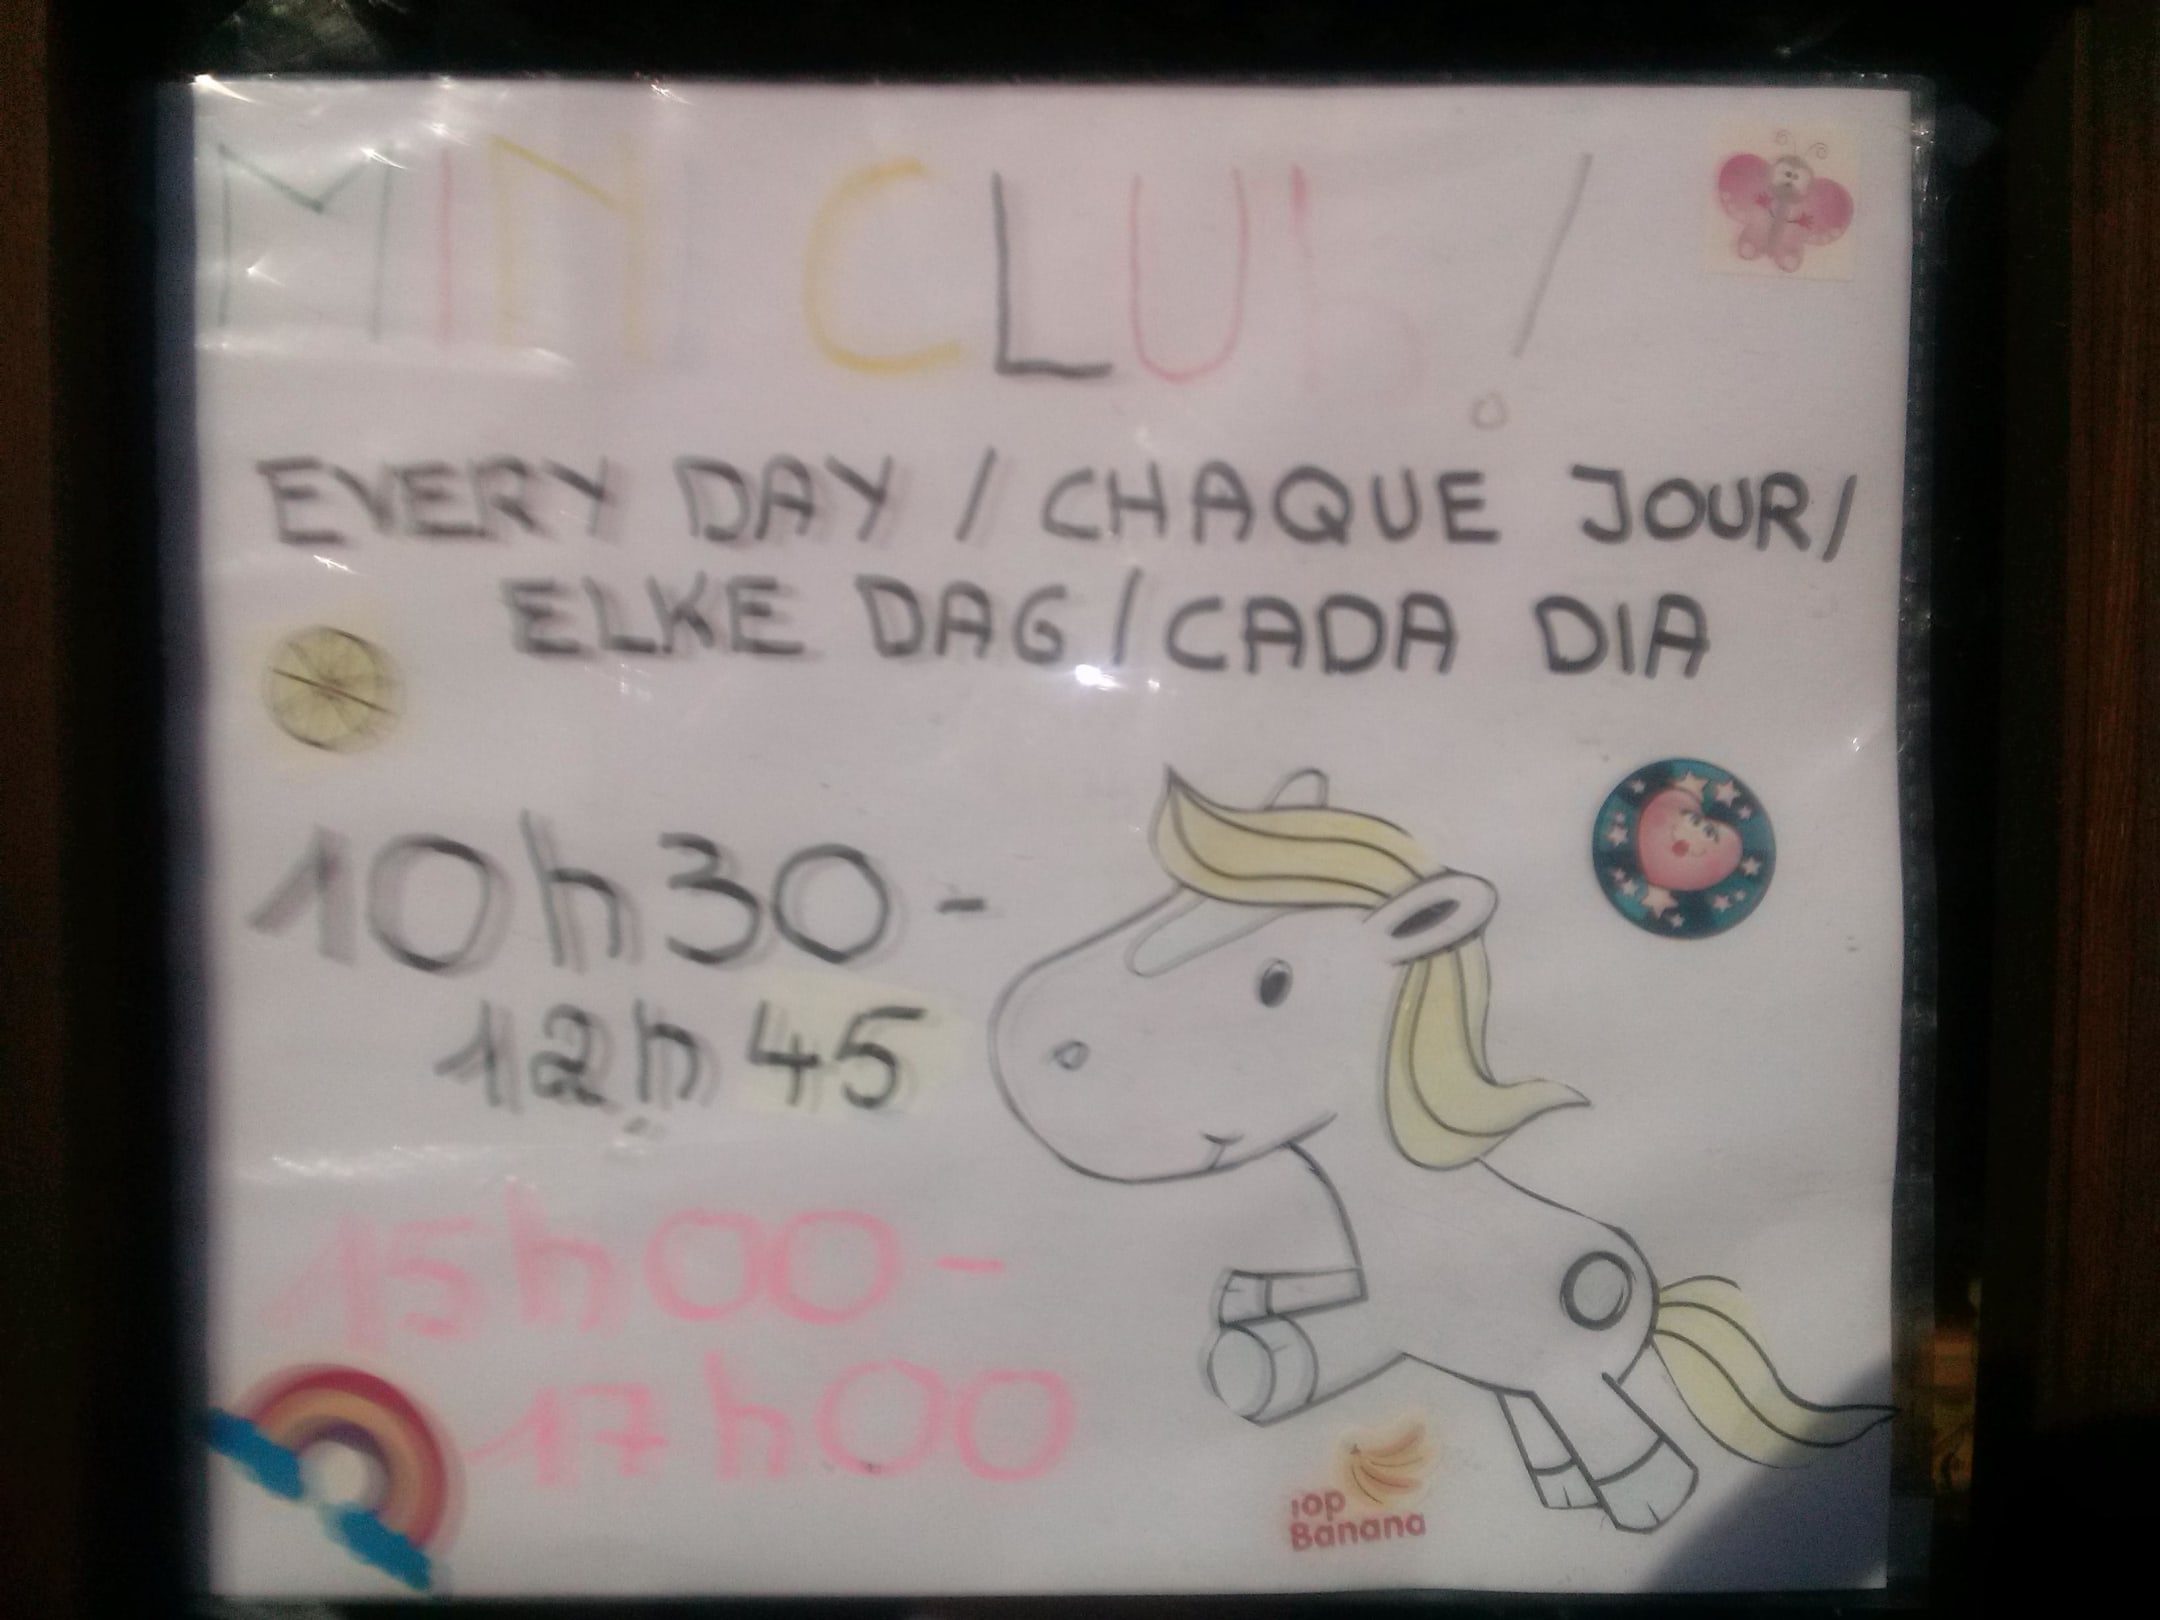 MIN CLUB!
EVERY DAY / CHAQUE JOUR/
ELKE DAG / CADA DIA
10h30-
12h45
15h00-
17h00
TOP
Banana